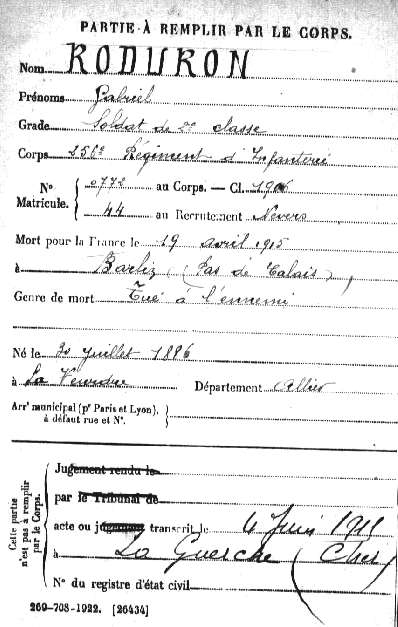 PARTIE À REMPLIR PAR LE CORPS.
Nom RODURON
Prénoms Gabriel
Grade Soldat de 2e classe
Corps 256e Régiment d'Infanterie
N° Matricule. { 0772 au Corps. — Cl. 1906
44 au Recrutement Nevers
Mort pour la France le 19 avril 1915
à Barliz (Pas de Calais)
Genre de mort Tué à l'ennemi
Né le 30 juillet 1886
à La Veurdre Département Allier
Arrt municipal (pr Paris et Lyon), à défaut rue et N°. {
Cette partie n'est pas à remplir par le Corps.
Jugement rendu le
par le Tribunal de
acte ou jugement transcrit le 4 Juin 1915
à La Guerche (Cher)
N° du registre d'état civil
260-708-1922. [26434]